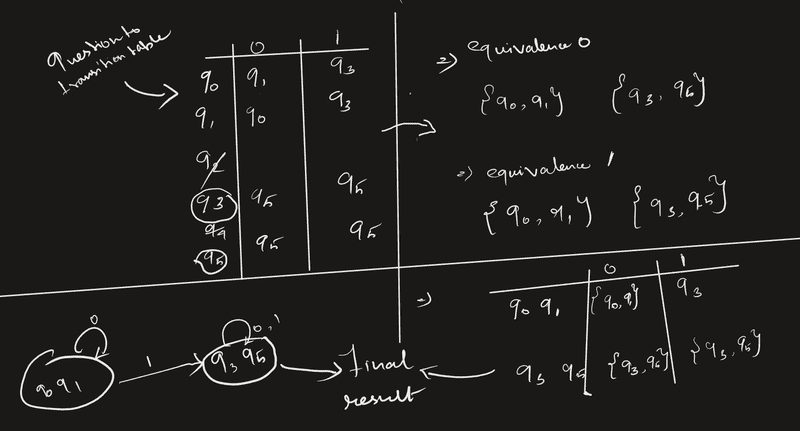 Question to
transition table
0 1
q0 q1 q3
q1 q0 q3
q2
q3 q5 q5
q4
q5 q5 q5
=> equivalence 0
{q0, q1} {q3, q5}
=> equivalence 1
{q0, q1} {q3, q5}
=>
0 1
q0 q1 {q0, q1} q3
q3 q5 {q3, q5} {q3, q5}
0
0,1
q0 q1
1
q3 q5
final
result